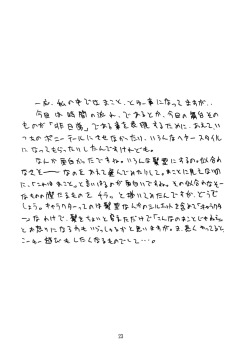 一応、私の中でなまこと、とらー事になってますが、
今回は時間の流れ、であるとか、今回の舞台その
ものが「非日常」である事を表現するために、あえていつ
ものポニーテールにさせなかったり、いろんなヘアースタイル
になってもらったりしたんですけれども。
なんか面白かったですね。いろんな髪型にするの。似合わ
なそーーなのをあえて選んでみたりして。まことに見えないの
に、「これはまこと。」と言いはるのが面白いですね。その似合わなそー
なものの際たるものを チラッ と描いてみたんですが、どうで
しょう。キャラクターってのは髪型なんかのシルエットを含めて「キャラクタ
ー」なわけで、髪をちょいと変えただけで「こんなのまことじゃねェっ」
とお怒りになる方もいらっしゃるかと思いますが。ま、長くやってると、
こーゆー遊びもしたくなるものでして…。
23